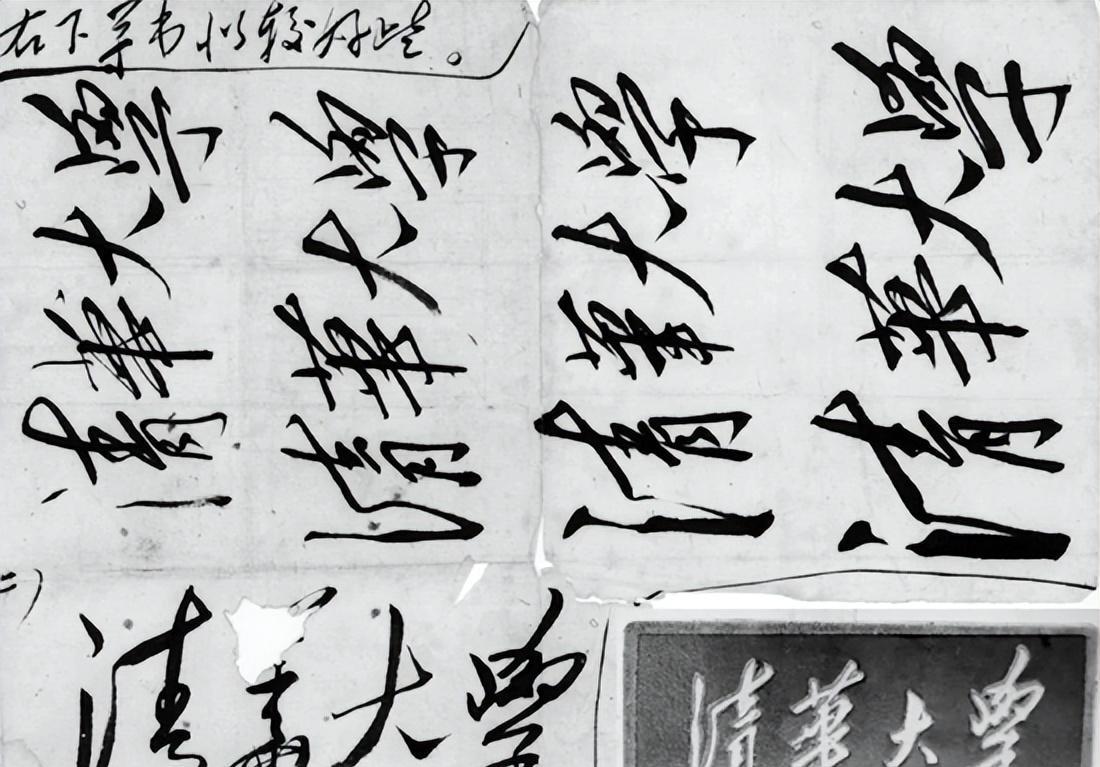 右下草书似较好些。
清华大学
清华大学
清华大学
清华大学
二）
清华大学
清華大學